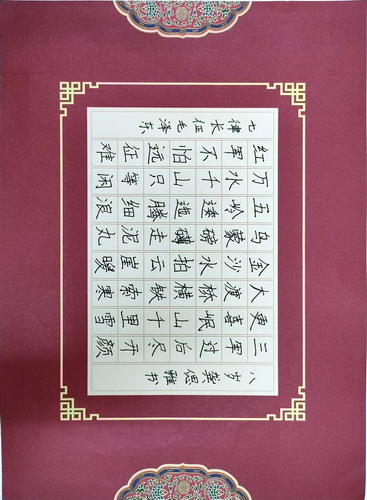 七律长征 毛泽东
红军不怕远征难
万水千山只等闲
五岭逶迤腾细浪
乌蒙磅礴走泥丸
金沙水拍云崖暖
大渡桥横铁索寒
更喜岷山千里雪
三军过后尽开颜
八岁 龚偲雅书